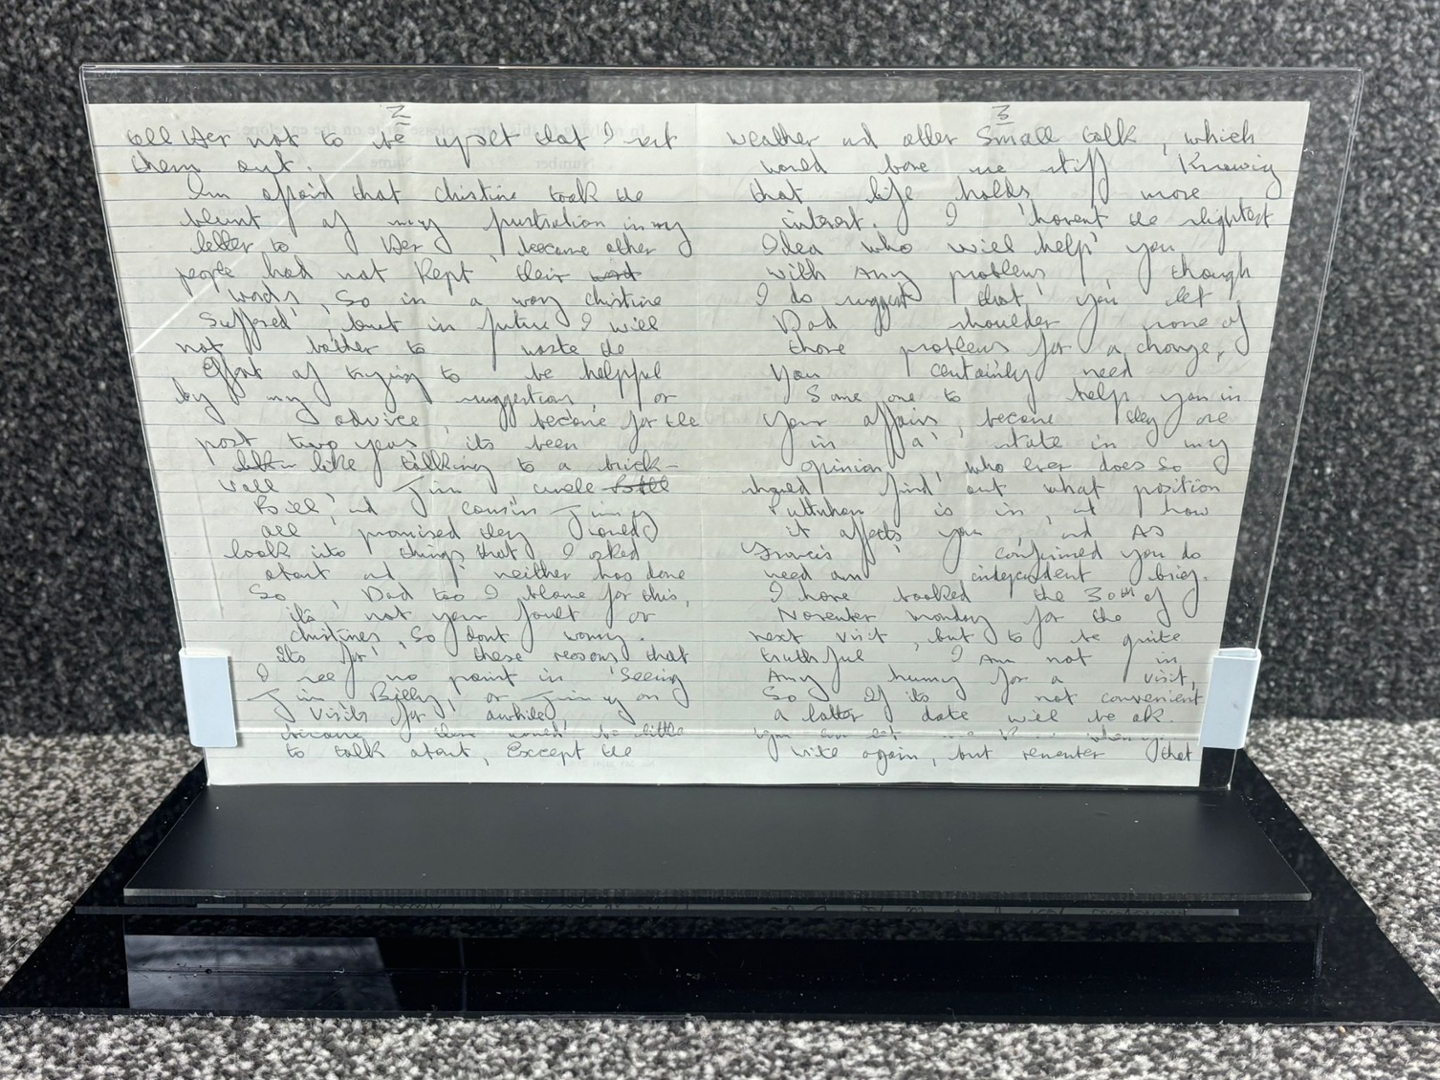 2
tell Her not to be upset that I sent
them out.
Im afraid that christine took the
blunt of my frustration in my
letter to Her, because other
people had not Kept their word
words, So in a way christine
Suffered, but in future I will
not bother to waste the
effort of trying to be helpful
by my suggestions, or
my advice, because for the
past two years, its been
like talking to a brick-
wall. Jim, uncle Bill
Bill, nd cousin Jimmy
all promised they would
look into things that I asked
about and neither has done
So, Dad too I blame for this,
its not your fault or
christines, So dont worry.
its for these reasons that
I see no point in Seeing
Jim, Billy, or Jimmy on
Visits for awhile,
because there would be little
to talk about, Except the
3
weather nd other Small talk, which
would bore me stiff Knowing
that life holds more
interest. I havent the slightest
Idea who will help you
with Any problems, though
I do suggest that you let
Dad shoulder none of
those problems for a change,
You certainly need
Some one to help you in
Your affairs, because they are
in a state in my
opinion, who ever does so
should find out what position
is in, nd how
it affects you, nd As
Francis confirmed you do
need an independent brief.
I have booked the 30th of
November monday for the
next visit, but to be quite
truthful I Am not in
Any hurry for a visit,
So If its not convenient
a latter date will be ok.
write again, but remember that
In replying to this letter, please write on the envelope:
Number Name